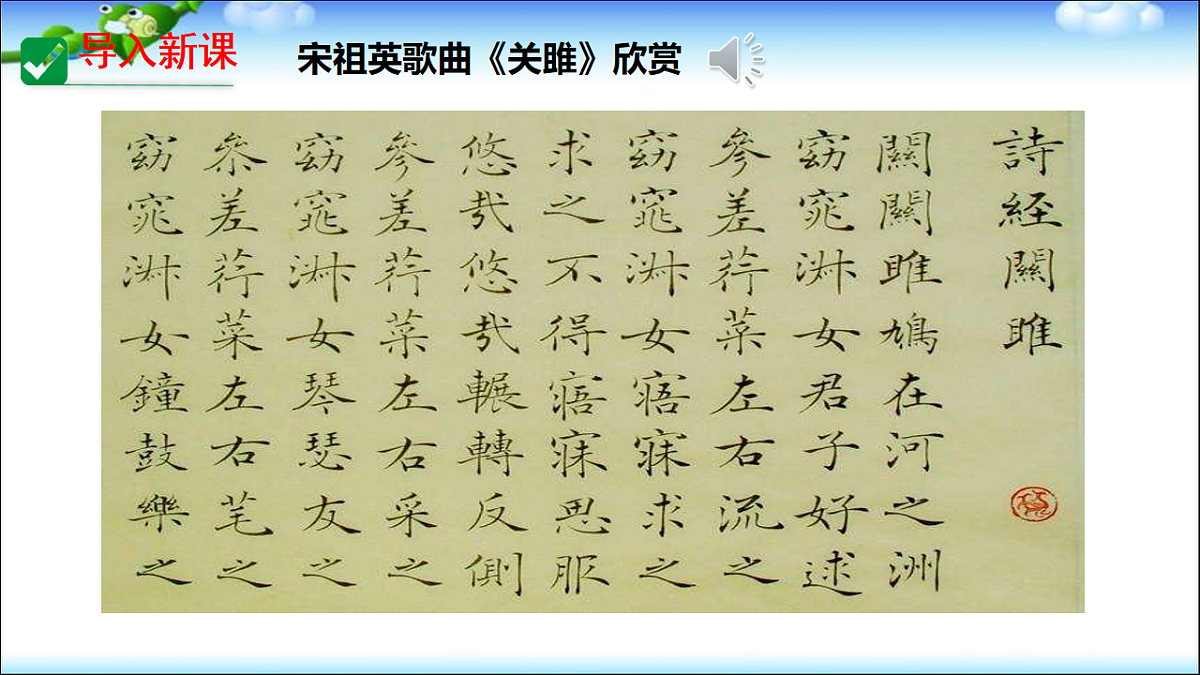 导入新课
宋祖英歌曲《关雎》欣赏
詩経關雎
關關雎鳩在河之洲
窈窕淑女君子好逑
參差荇菜左右流之
窈窕淑女寤寐求之
求之不得寤寐思服
悠哉悠哉輾轉反側
參差荇菜左右采之
窈窕淑女琴瑟友之
參差荇菜左右芼之
窈窕淑女鐘鼓樂之